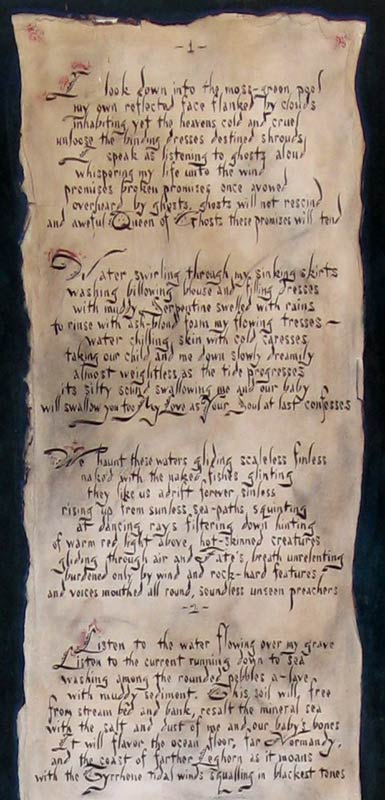 -1-
I look down into the moss-green pool
my own reflected face flanked by clouds
inhabiting yet the heavens cold and cruel
unloose the binding dresses destined shrouds
I speak as listening to ghosts aloud
whispering my life unto the wind
promises broken promises once avowed
overheard by ghosts, ghosts will not rescind
and aweful Queen of Ghosts these promises will tend
Water swirling through my sinking skirts
washing billowing blouse and filling dresses
with muddy Serpentine swelled with rains
to rinse with ash-blond foam my flowing tresses—
water chilling skin with cold caresses
taking our child and me down slowly dreamily
almost weightless as the tide progresses
its silty sound swallowing me and our baby
will swallow you too My Love as Your Soul at last confesses
We haunt these waters gliding scaleless finless
naked with the naked fishes glinting
they like us adrift forever, sinless
rising up from sunless sea-paths, squinting
at dancing rays filtering down hinting
of warm red light above, hot-skinned creatures
gliding through air and Fate's breath unrelenting
burdened only by wind and rock-hard features
and voices mouthed all round, soundless unseen preachers
-2-
Listen to the water flowing over my grave
Listen to the current running down to sea
washing among the rounded pebbles a-lave
with muddy sediment. This soil will, free
from stream bed and bank, resalt the mineral sea
with the salt and dust of me and our baby's bones
It will flavor the ocean floor, far Normandy,
and the coast of farther Leghorn as it moans
with the Tyrrhene tidal winds squalling in blackest tones